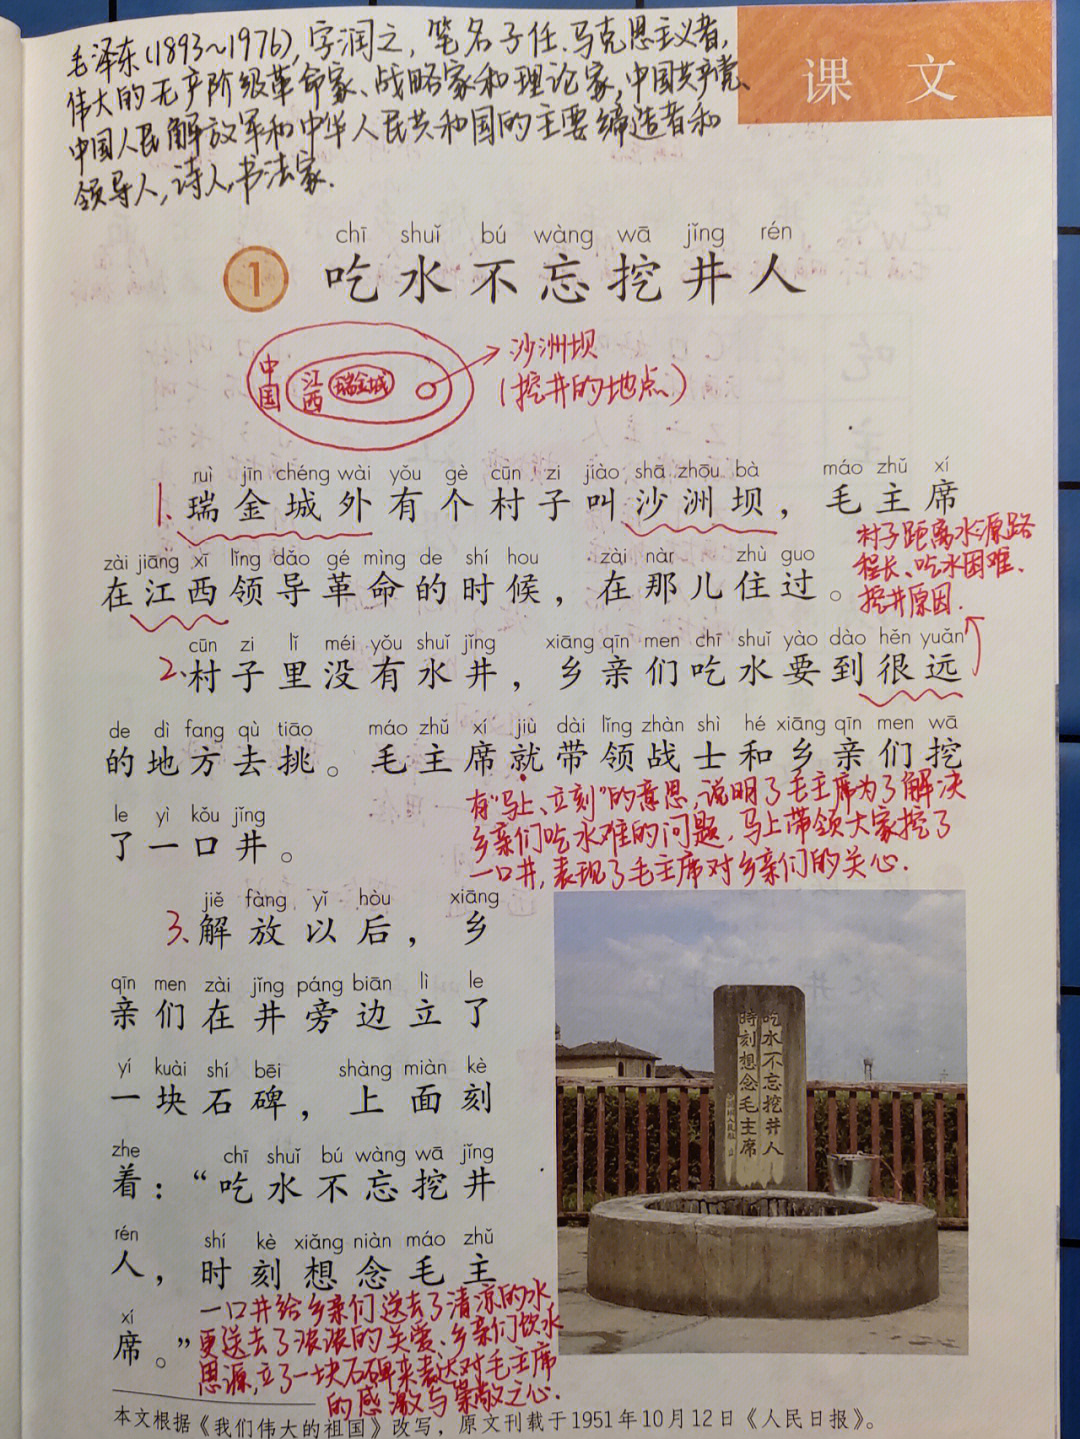 毛泽东(1893~1976),字润之,笔名子任.马克思主义者,
伟大的无产阶级革命家、战略家和理论家,中国共产党、
中国人民解放军和中华人民共和国的主要缔造者和
领导人,诗人,书法家.
课 文
chī shuǐ bú wàng wā jǐng rén
1 吃水不忘挖井人
中国 江西 瑞金城
沙洲坝
(挖井的地点)
ruì jīn chéng wài yǒu gè cūn zi jiào shā zhōu bà máo zhǔ xí
1.瑞金城外有个村子叫沙洲坝，毛主席
zài jiāng xī lǐng dǎo gé mìng de shí hou zài nàr zhù guo
在江西领导革命的时候，在那儿住过。
村子距离水源路
程长、吃水困难.
挖井原因.
cūn zi lǐ méi yǒu shuǐ jǐng xiāng qīn men chī shuǐ yào dào hěn yuǎn
2.村子里没有水井，乡亲们吃水要到很远
de dì fang qù tiāo máo zhǔ xí jiù dài lǐng zhàn shì hé xiāng qīn men wā
的地方去挑。毛主席就带领战士和乡亲们挖
le yì kǒu jǐng
了一口井。
有"马上、立刻"的意思,说明了毛主席为了解决
乡亲们吃水难的问题,马上带领大家挖了
一口井,表现了毛主席对乡亲们的关心.
jiě fàng yǐ hòu xiāng
3.解放以后，乡
qīn men zài jǐng páng biān lì le
亲们在井旁边立了
yí kuài shí bēi shàng miàn kè
一块石碑，上面刻
zhe chī shuǐ bú wàng wā jǐng
着：“吃水不忘挖井
rén shí kè xiǎng niàn máo zhǔ
人，时刻想念毛主
xí
席。”
吃水不忘挖井人
時刻想念毛主席
一口井给乡亲们送去了清凉的水
更送去了浓浓的关爱、乡亲们饮水
思源,立了一块石碑来表达对毛主席
的感激与崇敬之心.
本文根据《我们伟大的祖国》改写，原文刊载于1951年10月12日《人民日报》。